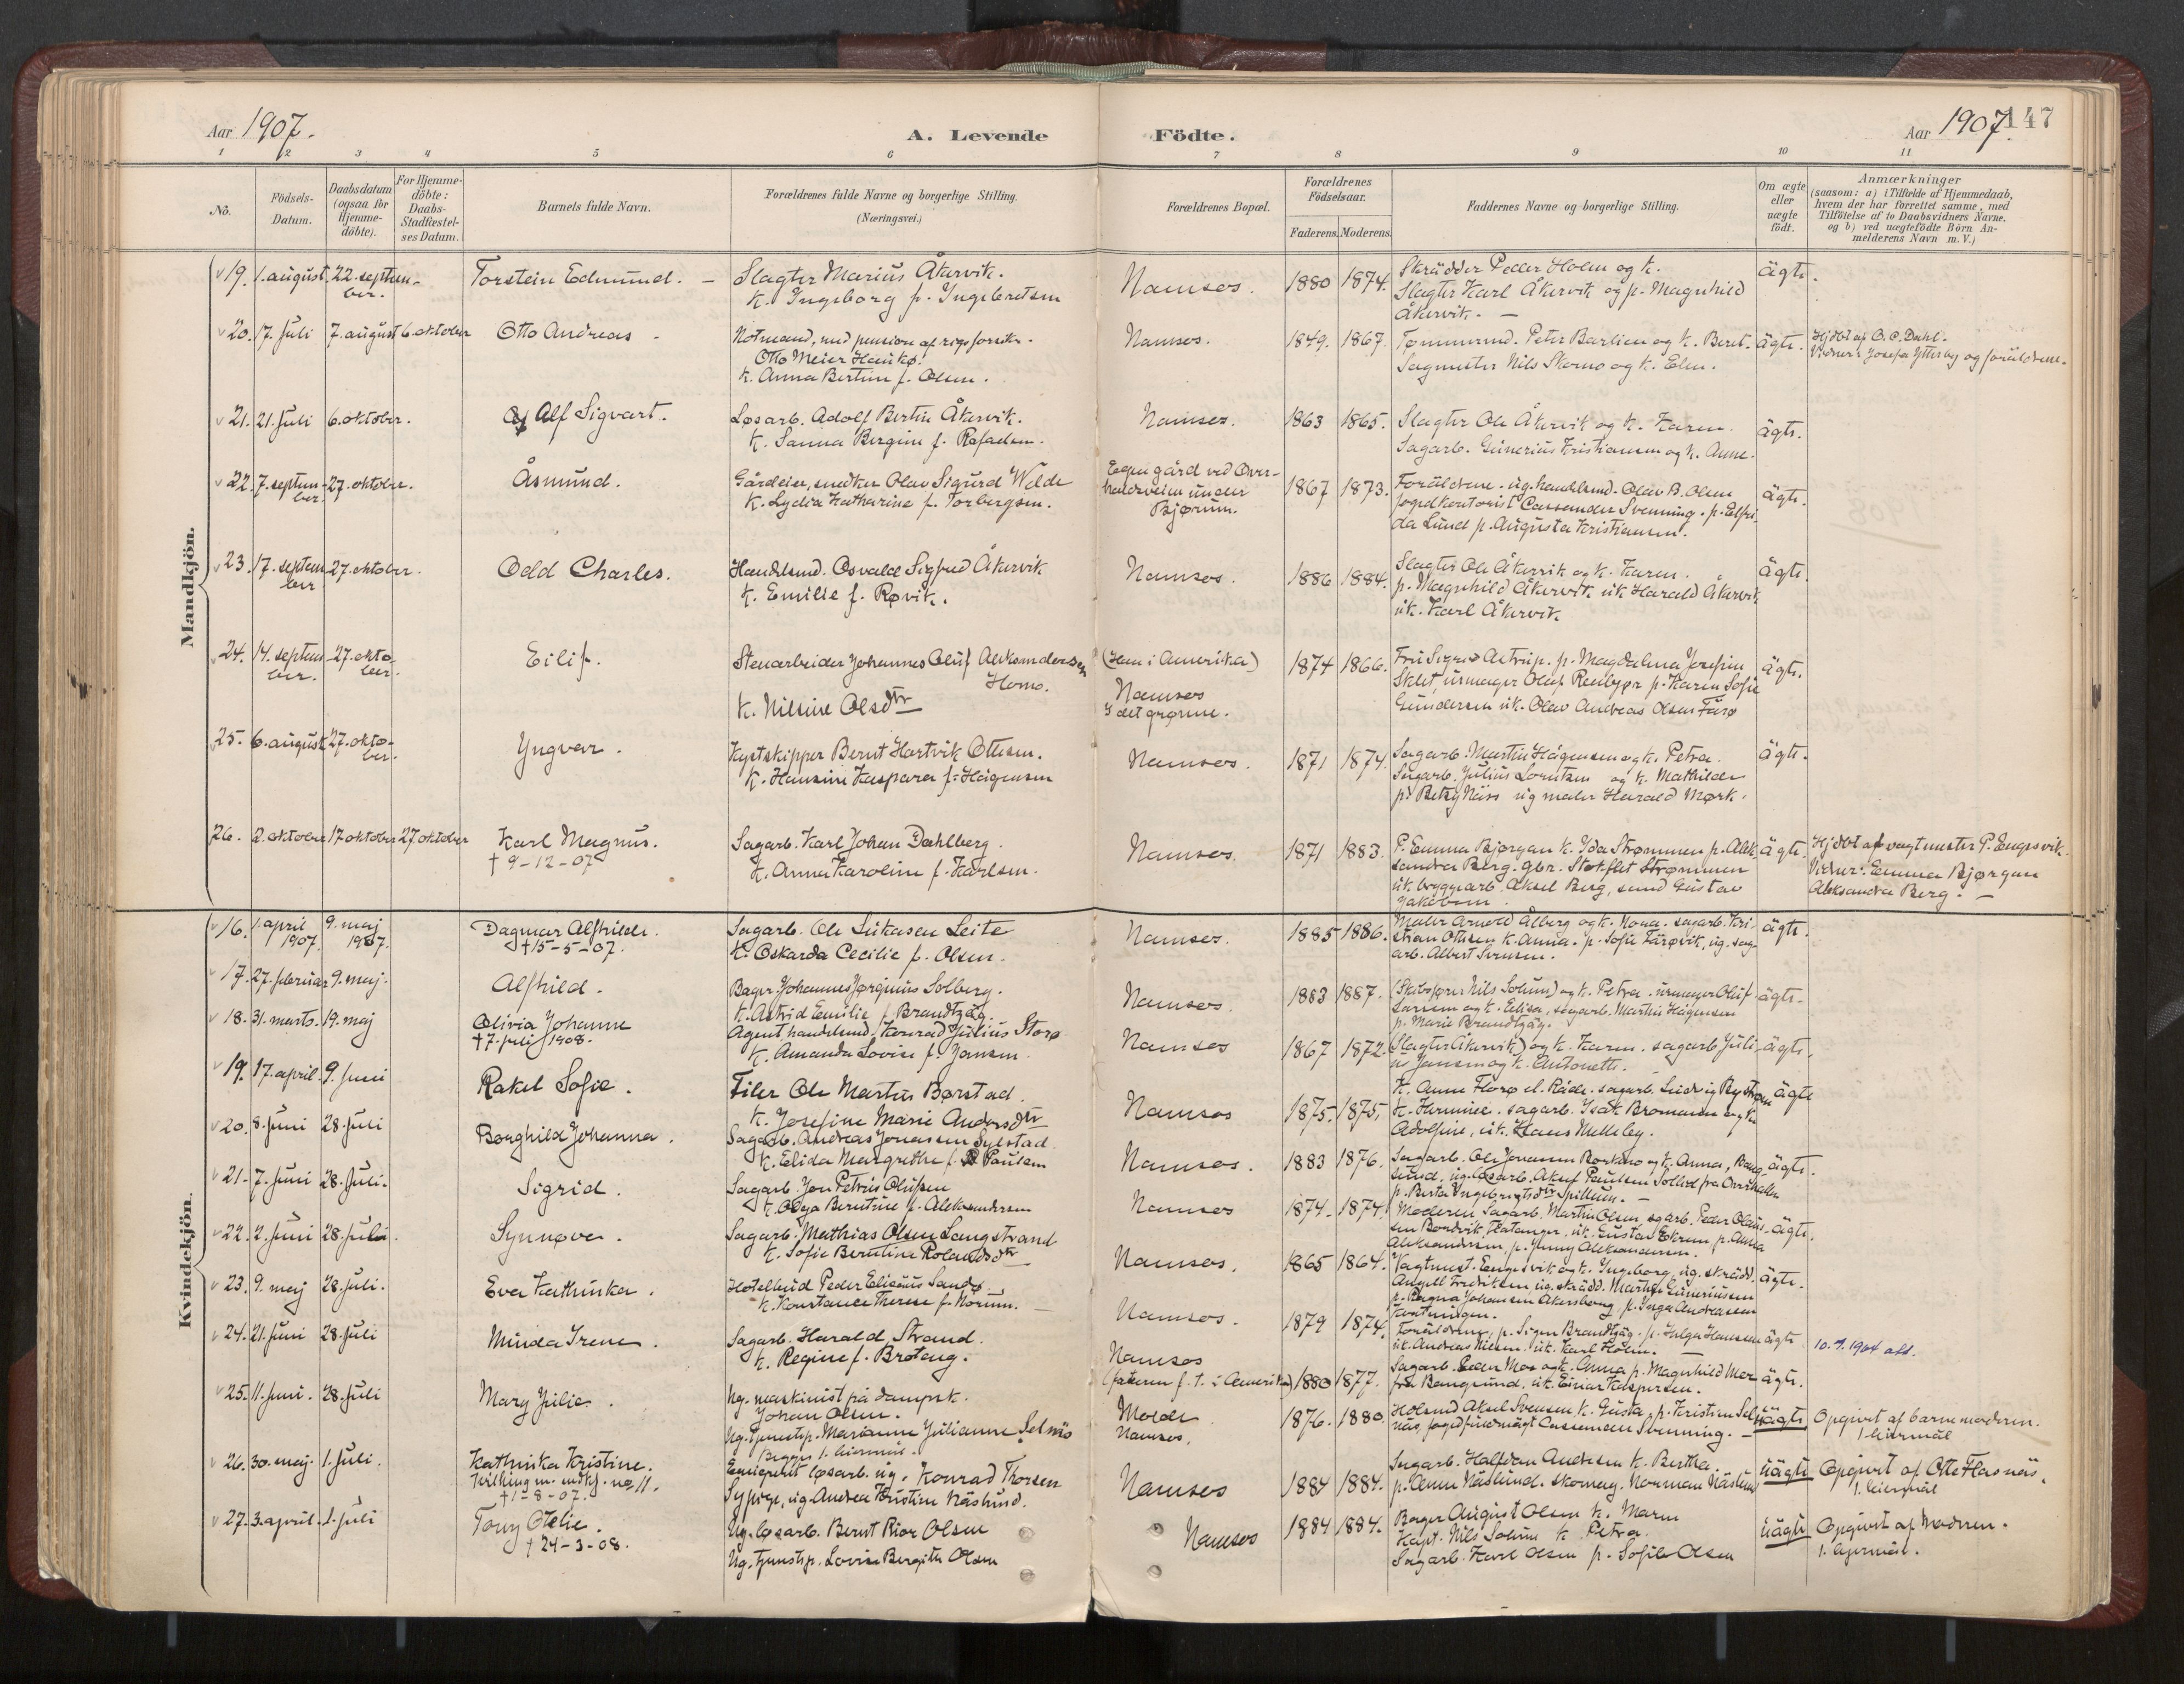 Aar 1907.
A. Levende Födte.
Aar 1907.
147
1 2 3 4 5 6 7 8 9 10 11
No.
Födsels-
Datum.
Daabsdatum
(ogsaa for
Hjemme-
döbte).
For Hjemme-
döbte:
Daabs-
Stadfæstel-
ses Datum.
Barnets fulde Navn.
Forældrenes fulde Navne og borgerlige Stilling.
(Næringsvei.)
Forældrenes Bopæl.
Forældrenes
Födselsaar.
Faderens. Moderens.
Faddernes Navne og borgerlige Stilling.
Om ægte
eller
uægte
født.
Anmærkninger
(saasom: a) i Tilfælde af Hjemmedaab,
hvem der har forrettet samme, med
Tilföielse af to Daabsvidners Navne.
og b) ved uægtefödte Börn An-
melderens Navn m. V.)
Mandkjön.
19. 1. august. 22. septem-
ber.
Torstein Edmund. -
Slagter Marius Åkervik.
K. Ingeborg f. Ingebretsen
Namsos.
1880 1874.
Skrädder Peder Holm og k.
Slagter Karl Åkervik og p. Magnhild
Åkervik. -
ägte.
20. 17. juli 7. august 6. oktober
Otto Andreas -
Notmand, med pension af rigsforsikr.
Otto Meier Haukø.
K. Anna Bertine f. Olsen.
Namsos.
1849. 1867.
Tømmermd. Peter Barlien og k. Beret.
Sagmester Nils Skomo og k. Elen.
ägte.
Hjdbt af O. C. Dahl.
Vidner: Josefa Ytterby og foräldrene.
21. 21. juli 6. oktober.
Alf Sigvart.
Løsarb. Adolf Bertin Åkervik.
K. Sanna Bergine f. Rafaelsen.
Namsos.
1863 1865.
Slagter Ole Åkervik og k. Karen.
Sagarb. Gunerius Kristiansen og k. Anne.
ägte.
22. 7. septem-
ber 27. oktober.
Åsmund.
Gårdeier, snedker Olav Sigurd Welde
K. Lydia Katharine f. Torbergsen.
Egen gård ved Over-
haldsveien under
Bjørum.
1867 1873.
Foräldrene. ug. handelsmd. Olav B. Olsen
fogedkontorist Cassander Svenning. p. Elfri-
da Lund p. Augusta Kristiansen.
ägte.
23. 17. septem
ber 27. oktober.
Odd Charles.
Handelsmd. Osvald Sigfred Åkervik
K. Emilie f. Røvik.
Namsos.
1886 1884.
Slagter Ole Åkervik og k. Karen.
p. Magnhild Åkervik uk. Harald Åkervik
uk. Karl Åkervik
ägte.
24. 14. septem
ber. 27. okto-
ber.
Eilif.
Stenarbeider Johannes Oluf Aleksandersen
Homo.
K. Nilsine Olsdtr
(Han i Amerika)
Namsos
I det grønne.
1874 1866.
Fru Sigrid Astrup. p. Magdalena Josefine
Sklet, urmager Oluf Reinbjør p. Karen Sofie
Gundersen uk. Olav Andreas Olsen Furø
ägte.
25. 6. august 27. okto-
ber.
Yngvar.
Kystskipper Bernt Hartvik Ottesen.
K. Hansine Kaspara f. Haugensen
Namsos.
1871 1874.
Sagarb. Martin Haugensen og k. Petra.
Sagarb. Julius Lorntsen og k. Mathilde
p. Betzy Näss ug maler Harald Mørk.
ägte.
26. 2. oktober 17 oktober 27 oktober
Karl Magnus.
† 9-12-07
Sagarb. Karl Johan Dahlberg.
K. Anna Karoline f. Karlsen.
Namsos.
1871 1883.
P. Emma Bjørgan k. Ida Strømmen p. Alek-
sandra Berg. gbr. Stokflet Strømmen
uk. bryggearb. Aksel Berg, smed Gustav
Jakobsen.
ägte.
Hjdbt af vagtmester P. Engesvik.
Vidner: Emma Bjørgan
Aleksandra Berg. -
Kvindekjön.
16. 1. april
1907. 9. maj
1907.
Dagmar Alfhilde.
† 15-5-07.
Sagarb. Ole Lukasen Leite
K. Oskarda Cecilie f. Olsen.
Namsos.
1885 1886.
Maler Arnold Ålberg og k. Nona. sagarb. Kri-
stian Ottesen k. Anna. p. Sofie Færøvik, ug. sag-
arb. Albert Svensen.
ägte.
17. 27. februar 9. maj.
Alfhild.
Bager Johannes Jørginus Solberg.
K. Astrid Emilie f. Brandtzäg.
Namsos.
1883 1887.
(Skibsfører Nils Solum) og k. Petra. urmager Oluf
Larsen og k. Elisa, sagarb. Martin Haugensen
p. Marie Brandtzäg.
ägte.
18. 31. marts. 19. maj
Olivia Johanne
† 7. juli 1908.
Agent handelsmd. Konrad Julius Storø
K. Amanda Lovise f. Jansen.
Namsos
1867 1872.
(Slagter Åkervik) og k. Karen. sagarb Juli-
us Jansen og k. Antonette.
ägte.
19. 17. april. 9. juni
Rakel Sofie.
Filer Ole Martin Børstad.
K. Josefine Marie Andersdtr
Namsos
1875. 1875.
K. Anne Florø el. Råde. sagarb. Ludvig Bystrøm
K. Hermine. sagarb. Isak Bromann og k.
Adolfine, uk. Hans Melleby.
ägte
20. 8. juni 28. juli
Borghild Johanna.
Sagarb. Andreas Jonassen Sylstad
K. Elida Margrethe f. Paulsen
Namsos.
1883 1876.
Sagarb. Ole Johansen Rorkmo og k. Anna, Bang-
sund, ug. løsarb. Aksel Paulsen Sollid fra Overhallen
p. Berta Ingebrigtsdtr Spillum. -
ägte.
21. 7. juni 28. juli.
Sigrid.
Sagarb. Jon Petrus Olufsen
K. Olga Berntine f. Aleksandersen
Namsos
1874. 1874.
Moderen Sagarb. Martin Olsen, sgarb. Peder Olaus-
sen Bordvik, Flatanger, uk. Gustav Ekrem p. Anna
Aleksandersen, p. Jenny Aleksandersen.
ägte.
22. 2. juni 28. juli.
Synnøve.
Sagarb. Mathias Olsen Langstrand
K. Sofie Berntine Rolandsdtr
Namsos.
1865 1864.
Vagtmest. Engesvik og k. Ingeborg, ug. skrädd.
Angell Fredriksen ug. skrädd. Martin Guneriussen
p. Ragna Johansen Akersborg, p. Inga Andreassen
Kvatningen.
ägte.
23. 9. maj 28. juli.
Eva Kathinka.
Hotelbud Peder Elisäus Sandø
K. Konstance Therese f. Norum.
Namsos.
1879 1874.
Foräldrene, p. Signe Brandtzäg. p. Helga Hansen
uk. Andreas Nilsen. uk. Karl Holm. -
ägte
24. 21. juni 28. juli
Minda Irene.
Sagarb. Harald Strand.
K. Regine f. Brøteng.
Namsos
(faderen f. t. i Amerika)
1880 1877.
Sagarb. Peder Moe og k. Anna p. Magnhild Moe
fra Bangsund, uk. Einar Kaspersen.
ägte.
10.7.1904 att.
25. 11. juni. 28. juli
Mary Julie.
Ug. maskinist på dampsk.
Johan Olsen.
Ug. tjenestp. Marianne Julianne Selnäs
Begges 1. leiermål.
Molde
Namsos.
1876. 1880.
Holsmd Aksel Svensen k. Gusta. p. Kristine Sel-
näs, fogedfuldmägt Cassander Svenning. -
uägte
Opgivet af barnemoderen.
1 leiermål
26. 30. maj. 1. juli.
Kathinka Kristine.
tvilling m. mdkj. no 11.
† 1-8-07.
Emigrent løsarb. ug. Konrad Thorsen
Sypige, ug. Andrea Kristine Näslund.
Namsos
1884 1884.
Sagarb. Halfdan Andersen k. Bertha.
p. Anna Näslund. skomag. Norman Näslund
uägte
Opgivet af Otto Flasnäs.
1. leiermål
27. 3. april. 1. juli
Tony Otelie.
† 24-3-08.
Ug. løsarb. Bernt Rior Olsen
Ug. tjenstp. Lovise Bergitte Olsen
Namsos
1884 1884.
Bager August Olsen k. Maren
Kapt. Nils Solum k. Petra.
Sagarb. Karl Olsen p. Sofie Olsen
uägte
Opgivet af moderen.
1. leiermål.